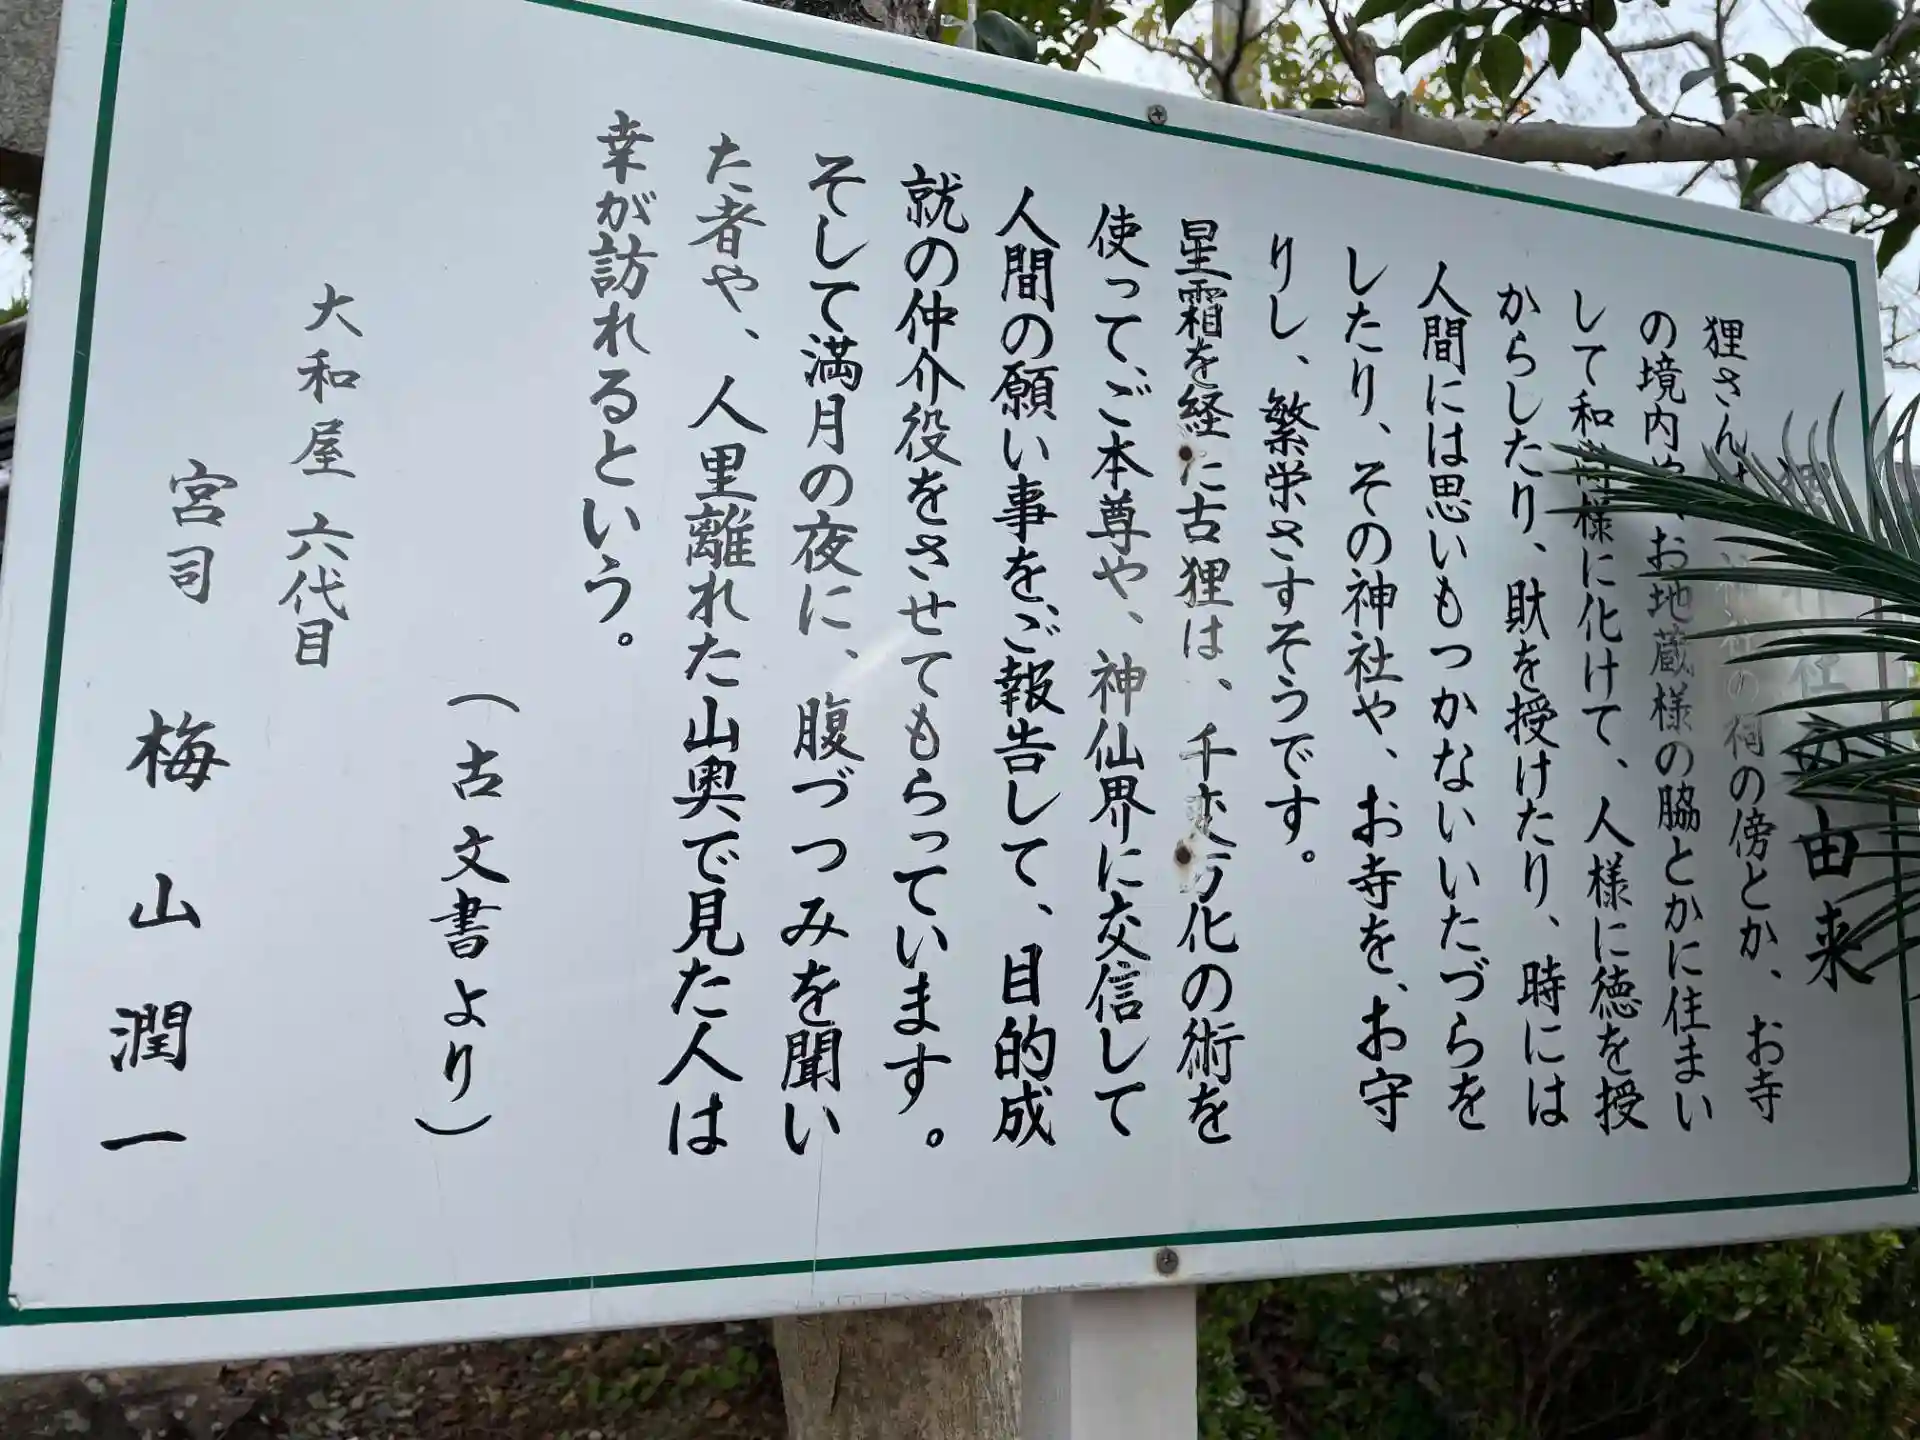 神社 由来
狸さん 祠の傍とか、お寺
の境内や、お地蔵様の脇とかに住まい
して和尚様に化けて、人様に徳を授
からしたり、財を授けたり、時には
人間には思いもつかないいたづらを
したり、その神社や、お寺を、お守
りし、繁栄さすそうです。
星霜を経た古狸は、千変万化の術を
使って、ご本尊や、神仙界に交信して
人間の願い事を、ご報告して、目的成
就の仲介役をさせてもらっています。
そして満月の夜に、腹づつみを聞い
た者や、人里離れた山奥で見た人は
幸が訪れるという。
(古文書より)
大和屋 六代目
宮司 梅山潤一